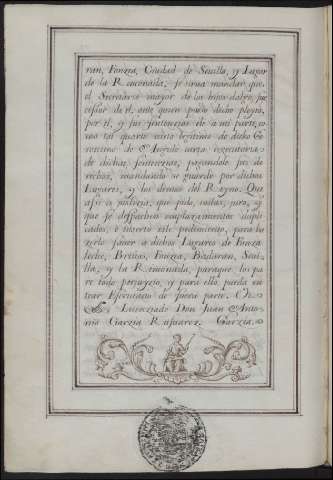 ran, Fonzea, Ciudad de Sevilla, y Lugar
de la Rinconada, se sirva mandar que
el Secretario mayor de los hijos-dalgo, su
cessor de el, ante quien pasó dicho pleyto,
por el, y sus sentencias dè a mi parte, co
mo tal quarto nieto legitimo de dicho Ge
ronimo de Angulo carta executoria
de dichas sentencias, pagandole sus de
rechos, mandando se guarde por dichos
Lugares, y los demas del Reyno. Que
asi es justicia, que pido, costas, juro, y
que se despachen emplazamientos dupli
cados, è inserto este pedimento, para ha
zerlo saver a dichos Lugares de Fonza
leche, Briñas, Fonzea, Badaran, Sevi
lla, y la Rinconada, paraque los pa
re todo perjuyzio, y para ello pueda en
trar Escrivano de fuera parte. &c.
Licenciado Don Juan Anto
nio Garzia Garzia.